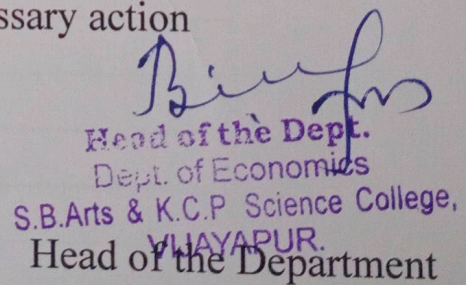 ssary action
Head of the Dept.
Dept. of Economics
S.B.Arts & K.C.P Science College,
VIJAYAPUR.
Head of the Department